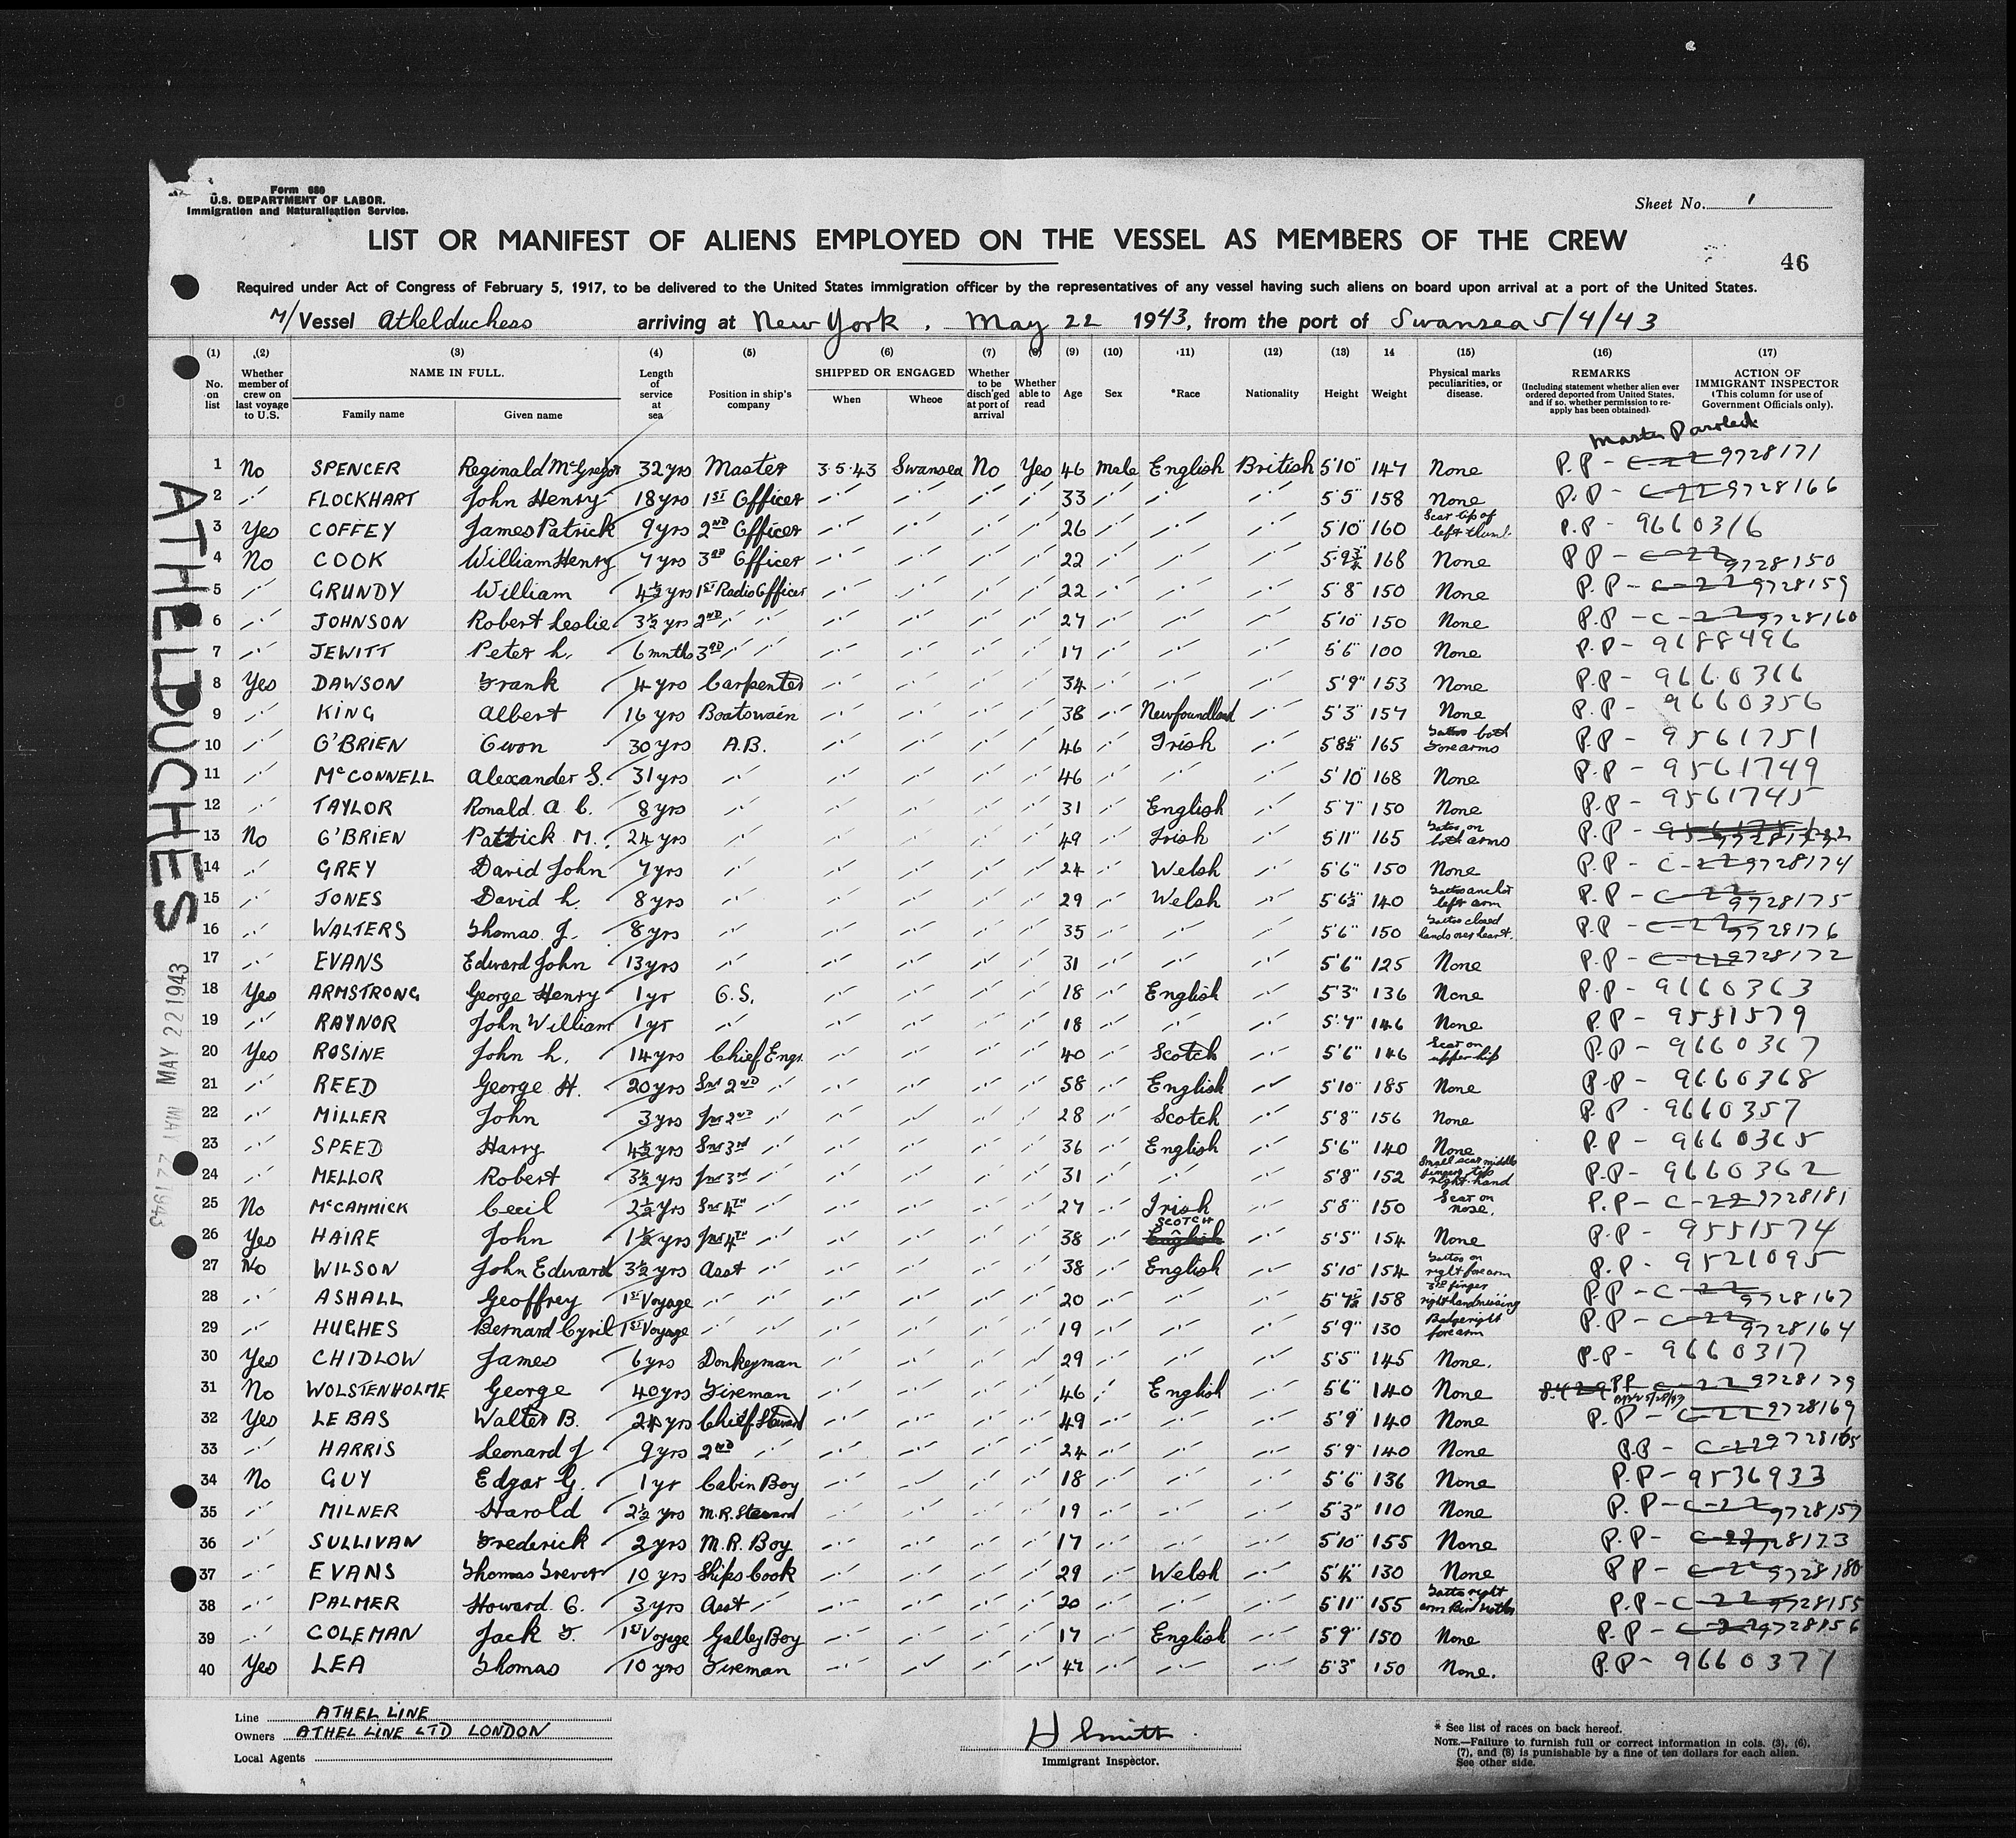 Form 680
U.S. DEPARTMENT OF LABOR.
Immigration and Naturalisation Service.
Sheet No. 1
LIST OR MANIFEST OF ALIENS EMPLOYED ON THE VESSEL AS MEMBERS OF THE CREW
46
Required under Act of Congress of February 5, 1917, to be delivered to the United States immigration officer by the representatives of any vessel having such aliens on board upon arrival at a port of the United States.
M/Vessel Athelduchess arriving at New York, May 22 1943, from the port of Swansea 5/4/43
(1) (2) (3) (4) (5) (6) (7) (8) (9) (10) (11) (12) (13) 14 (15) (16) (17)
No. on list
Whether member of crew on last voyage to U.S.
NAME IN FULL.
Family name Given name
Length of service at sea
Position in ship's company
SHIPPED OR ENGAGED
When Wheoe
Whether to be disch'ged at port of arrival
Whether able to read
Age
Sex
*Race
Nationality
Height
Weight
Physical marks peculiarities, or disease.
REMARKS
(Including statement whether alien ever ordered deported from United States, and if so, whether permission to re-apply has been obtained).
ACTION OF IMMIGRANT INSPECTOR
(This column for use of Government Officials only).
Master Paroled
1 No SPENCER Reginald McGregor 32yrs Master 3.5.43 Swansea No Yes 46 Male English British 5'10" 147 None P.P - C-22 9728171
2 " FLOCKHART John Henry 18yrs 1ST Officer " " " " 33 " " " 5'5" 158 None P.P - C-22 9728166
3 Yes COFFEY James Patrick 9yrs 2ND Officer " " " " 26 " " " 5'10" 160 Scar tip of left thumb P.P - 9660316
4 No COOK William Henry 7yrs 3RD Officer " " " " 22 " " " 5'9¾" 168 None PP - C-22 9728150
5 " GRUNDY William 4½yrs 1ST Radio Officer " " " " 22 " " " 5'8" 150 None P.P - C-22 9728159
6 " JOHNSON Robert Leslie 3½yrs 2ND " " " " " " 27 " " " 5'10" 150 None P.P - C-22 9728160
7 " JEWITT Peter L. 6mnths 3RD " " " " " " 17 " " " 5'6" 100 None P.P - 9688496
8 Yes DAWSON Frank 4yrs Carpenter " " " " 34 " " " 5'9" 153 None P.P - 9660366
9 " KING Albert 16yrs Boatswain " " " " 38 " Newfoundland " 5'3" 157 None P.P - 9660356
10 " O'BRIEN Owen 30yrs A.B. " " " " 46 " Irish " 5'8½" 165 Tattoo both forearms P.P - 9561751
11 " McCONNELL Alexander S. 31yrs " " " " " 46 " " " 5'10" 168 None P.P - 9561749
12 " TAYLOR Ronald A. C. 8yrs " " " " " 31 " English " 5'7" 150 None P.P - 9561745
13 No O'BRIEN Patrick M. 24yrs " " " " " 49 " Irish " 5'11" 165 Tattoo on both arms P.P -
14 " GREY David John 7yrs " " " " " 24 " Welsh " 5'6" 150 None P.P - C-22 9728174
15 " JONES David L. 8yrs " " " " " 29 " Welsh " 5'6½" 140 Tattoo anchor left arm P.P - C-22 9728175
16 " WALTERS Thomas J. 8yrs " " " " " 35 " " " 5'6" 150 Tattoo closed hands over heart. P.P - C-22 9728176
17 " EVANS Edward John 13yrs " " " " " 31 " " " 5'6" 125 None P.P - C-22 9728172
18 Yes ARMSTRONG George Henry 1yr O.S. " " " " 18 " English " 5'3" 136 None P.P - 9660363
19 " RAYNOR John William 1yr " " " " " 18 " " " 5'7" 146 None P.P - 9551579
20 Yes ROSINE John L. 14yrs Chief Engr. " " " " 40 " Scotch " 5'6" 146 Scar on upper lip P.P - 9660367
21 " REED George H. 20yrs Snr 2ND " " " " " 58 " English " 5'10" 185 None P.P - 9660368
22 " MILLER John 3yrs Jnr 2ND " " " " " 28 " Scotch " 5'8" 156 None P.P - 9660357
23 " SPEED Harry 4½yrs Snr 3rd " " " " " 36 " English " 5'6" 140 None P.P - 9660365
24 " MELLOR Robert 3½yrs Jnr 3rd " " " " " 31 " " " 5'8" 152 Small scar middle finger tip right hand P.P - 9660362
25 No McCAMMICK Cecil 2½yrs Snr 4TH " " " " 27 " Irish " 5'8" 150 Scar on nose. P.P - C-22 9728181
26 Yes HAIRE John 1½yrs Jnr 4TH " " " " 38 " English SCOTCH " 5'5" 154 None P.P - 9551574
27 No WILSON John Edward 3½yrs Asst " " " " " 38 " English " 5'10" 154 Tattoo on right forearm P.P - 9521095
28 " ASHALL Geoffrey 1ST Voyage " " " " " " 20 " " " 5'7½" 158 3rd finger right hand missing P.P - C-22 9728167
29 " HUGHES Bernard Cyril 1ST Voyage " " " " " " 19 " " " 5'9" 130 Badge right forearm P.P - C-22 9728164
30 Yes CHIDLOW James 6yrs Donkeyman " " " " 29 " " " 5'5" 145 None. P.P - 9660317
31 No WOLSTENHOLME George 40yrs Fireman " " " " 46 " English " 5'6" 140 None PP C-22 9728179
32 Yes LEBAS Walter B. 24yrs Chief Steward " " " " 49 " " " 5'9" 140 None P.P - C-22 9728169
33 " HARRIS Leonard J 9yrs 2ND " " " " " 24 " " " 5'9" 140 None P.P - C-22 9728165
34 No GUY Edgar G. 1yr Cabin Boy " " " " 18 " " " 5'6" 136 None P.P - 9536933
35 " MILNER Harold 2½yrs M.R. Steward " " " " 19 " " " 5'3" 110 None P.P - C-22 9728157
36 " SULLIVAN Frederick 2yrs M.R. Boy " " " " 17 " " " 5'10" 155 None P.P - 28173
37 " EVANS Thomas Trevor 10yrs Ships Cook " " " " 29 " Welsh " 130 None PP - C-22 9728180
38 " PALMER Howard G. 3yrs Asst " " " " " 20 " " " 5'11" 155 Tattoo right arm P.P - C-22 9728155
39 " COLEMAN Jack F. 1ST Voyage Galley Boy " " " " 17 " English " 5'9" 150 None P.P - C-22 9728156
40 Yes LEA Thomas 10yrs Fireman " " " " 47 " " " 5'3" 150 None. P.P - 9660377
ATHELDUCHESS
MAY 22 1943
MAY 22 1943
Line ATHEL LINE
Owners ATHEL LINE LTD LONDON
Local Agents
H Smith
Immigrant Inspector.
* See list of races on back hereof.
NOTE.—Failure to furnish full or correct information in cols. (3), (6), (7), and (8) is punishable by a fine of ten dollars for each alien.
See other side.